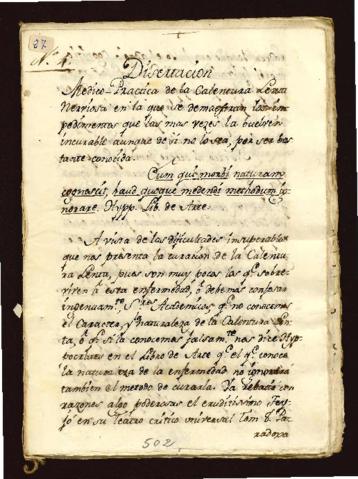 27
N. 4.
Disertacion
Medico-Practica de la Calentura Lenta
Nerviosa en la que se demuestran los im-
pedimentos que las mas vezes la buelven
incurable aunque de si no lo sea, por ser bas
tante conocida.
Cum qui morbi naturam
cognascit, haud quaque medendi methodum ig
norare. Hypp. Lib. de Arte.
A vista de las dificultades insuperables
que nos presenta la curacion de la Calentu
ra Lenta, pues son muy pocas los q.e sobre
viven á esta enfermedad, ó debemos confesar
ingenuam.te S.res Academicos q.e no conocemos
el Caracter, y Naturaleza de la Calentura Len
ta, ó q.e si la conocemos falsam.te nos dice Hyp
pocrates en el Libro de Arte q.e el q.e conoce
la naturaleza de la enfermedad no ignorará
tambien el metodo de curarla. Ya rebatió con
razones algo poderosas el eruditissimo Fey-
jó en su Teatro critico universal Tom. 8. Pa
radoxa
502